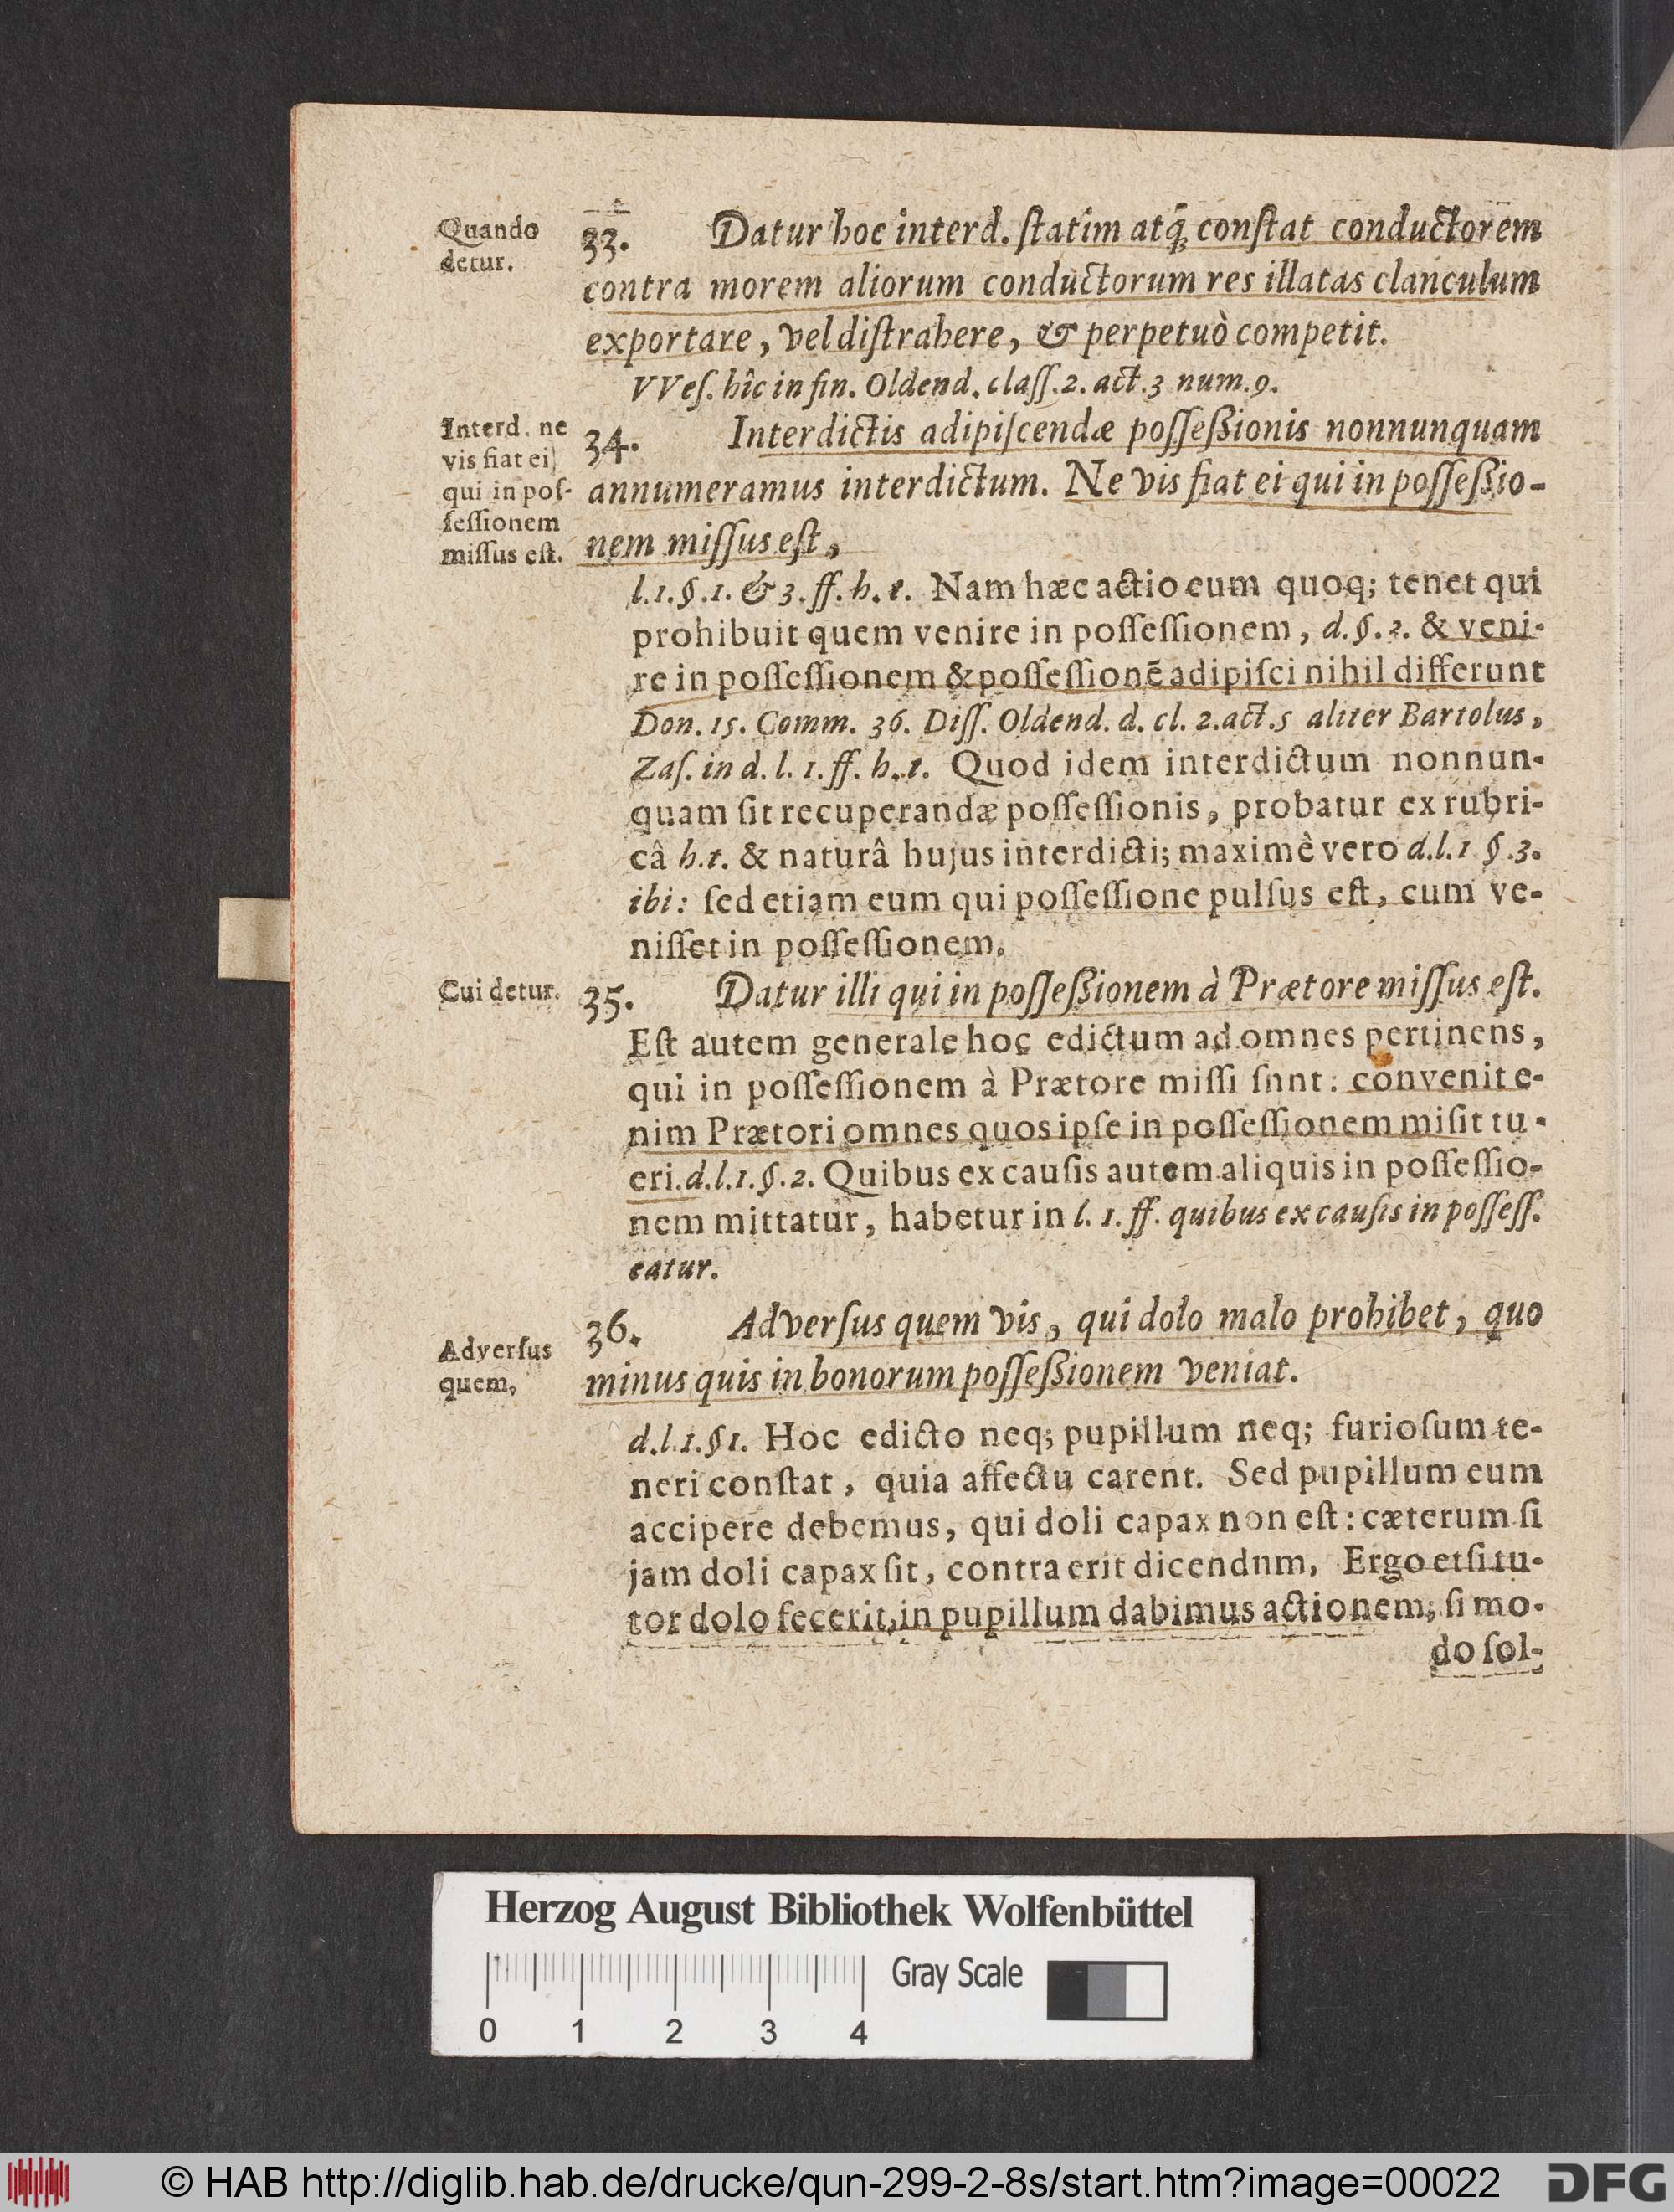 Quando
detur.
33. Datur hoc interd. ſtatim atq́; conſtat conductorem
contra morem aliorum conductorum res illatas clanculum
exportare, vel diſtrahere, & perpetuò competit.
VVeſ. hîc in fin. Oldend. claſſ. 2. act. 3 num. 9.
Interd. ne
vis fiat ei
qui in poſ-
ſeſſionem
miſſus eſt.
34. Interdictis adipiſcendæ poſſeßionis nonnunquam
annumeramus interdictum. Ne vis fiat ei qui in poſſeßio-
nem miſſus eſt,
l. 1. §. 1. & 3. ff. h. t. Nam hæc actio eum quoq; tenet qui
prohibuit quem venire in poſſeſſionem, d. §. 2. & veni-
re in poſſeſſionem & poſſeſſionē adipiſci nihil differunt
Don. 15. Comm. 36. Diſſ. Oldend. d. cl. 2. act. 5 aliter Bartolus,
Zaſ. in d. l. 1. ff. h. t. Quod idem interdictum nonnun-
quam ſit recuperandæ poſſeſſionis, probatur ex rubri-
câ h. t. & naturâ hujus interdicti; maximè vero d. l. 1 §. 3.
ibi: ſed etiam eum qui poſſeſſione pulſus eſt, cum ve-
niſſet in poſſeſſionem.
Cui detur.
35. Datur illi qui in poſſeßionem à Prætore miſſus eſt.
Eſt autem generale hoc edictum ad omnes pertinens,
qui in poſſeſſionem à Prætore miſſi ſnnt: convenit e-
nim Prætori omnes quos ipſe in poſſeſſionem miſit tu-
eri. d. l. 1. §. 2. Quibus ex cauſis autem aliquis in poſſeſſio-
nem mittatur, habetur in l. 1. ff. quibus ex cauſis in poſſeſſ.
eatur.
Adverſus
quem.
36. Adverſus quem vis, qui dolo malo prohibet, quo
minus quis in bonorum poſſeßionem veniat.
d. l. 1. § 1. Hoc edicto neq; pupillum neq; furioſum te-
neri conſtat, quia affectu carent. Sed pupillum eum
accipere debemus, qui doli capax non eſt: cæterum ſi
jam doli capax ſit, contra erit dicendnm, Ergo etſi tu-
tor dolo fecerit, in pupillum dabimus actionem; ſi mo-
do ſol-
Herzog August Bibliothek Wolfenbüttel
Gray Scale
0 1 2 3 4
© HAB http://diglib.hab.de/drucke/qun-299-2-8s/start.htm?image=00022
DFG